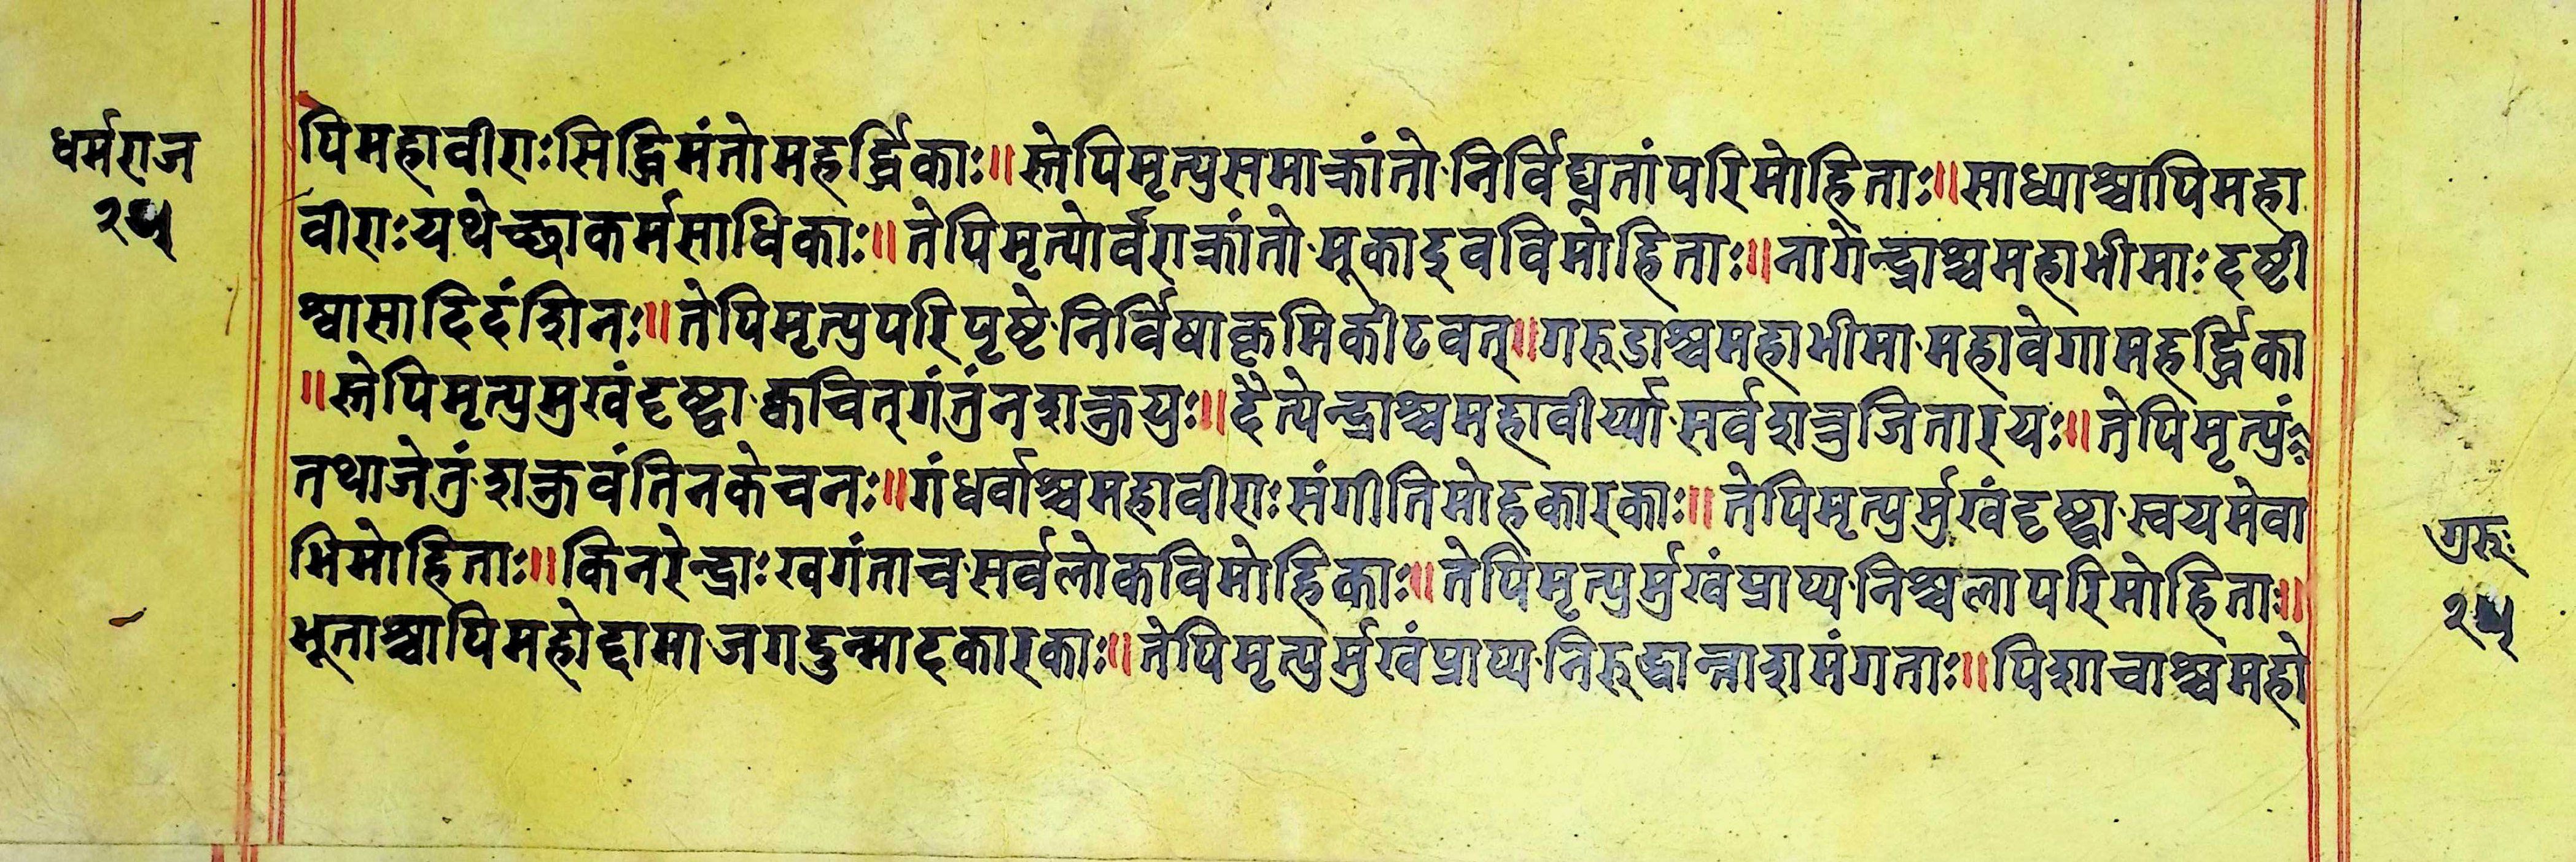 धर्मराज
२५
पिमहावीराःसिद्धिमंतोमहर्द्धिकाः॥स्तेपिमृत्युसमाक्रांतो·निर्विघ्नतांपरिमोहिताः॥साध्याश्चापिमहा
वीराःयथेच्छाकर्मसाधिकाः॥तेपिमृत्योर्वराक्रांतो·मूकाइवविमोहिताः॥नागेन्द्राश्चमहाभीमाःदृष्टी
श्वासादिदंशिनः॥तेपिमृत्युपरिपृष्टे·निर्विषाकृमिकीटवत्॥गरूडाश्चमहाभीमा·महावेगामहर्द्धिका
॥स्तेपिमृत्युमुखंदृष्ट्वा·क्वचित्गंतुंनशक्नुयुः॥दैत्येन्द्राश्चमहावीर्य्या·सर्वशत्रुजितारयः॥तेपिमृत्युं
तथाजेतुं·शक्नुवंतिनकेचनः॥गंधर्वाश्चमहावीराःसंगीतिमोहकारकाः॥तेपिमृत्युर्मुखंदृष्ट्वा·स्वयमेवा
भिमोहिताः॥किनरेन्द्राःखगंताच·सर्वलोकविमोहिकाः॥तेपिमृत्युर्मुखंप्राप्य·निश्चलापरिमोहिताः॥
भूताश्चापिमहोद्दामा·जगदुन्मादकारकाः॥तेपिमृत्युर्मुखंप्राप्य·निरूद्धान्नाशमंगताः॥पिशाचाश्चमहो
गुरूः
२५